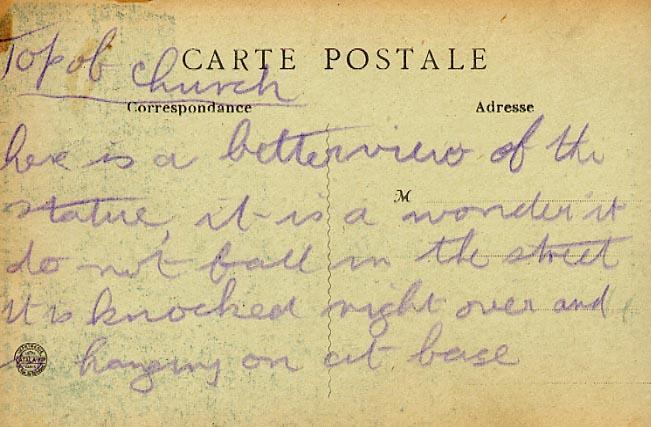 CARTE POSTALE
Top of church
Correspondance
Adresse
here is a better view of the
statue, it is a wonder it
M
do not fall in the street
it is knocked right over and
hanging on at base